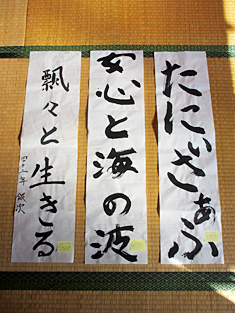 たにぃさぁふ
安心と海の波
飄々と生きる